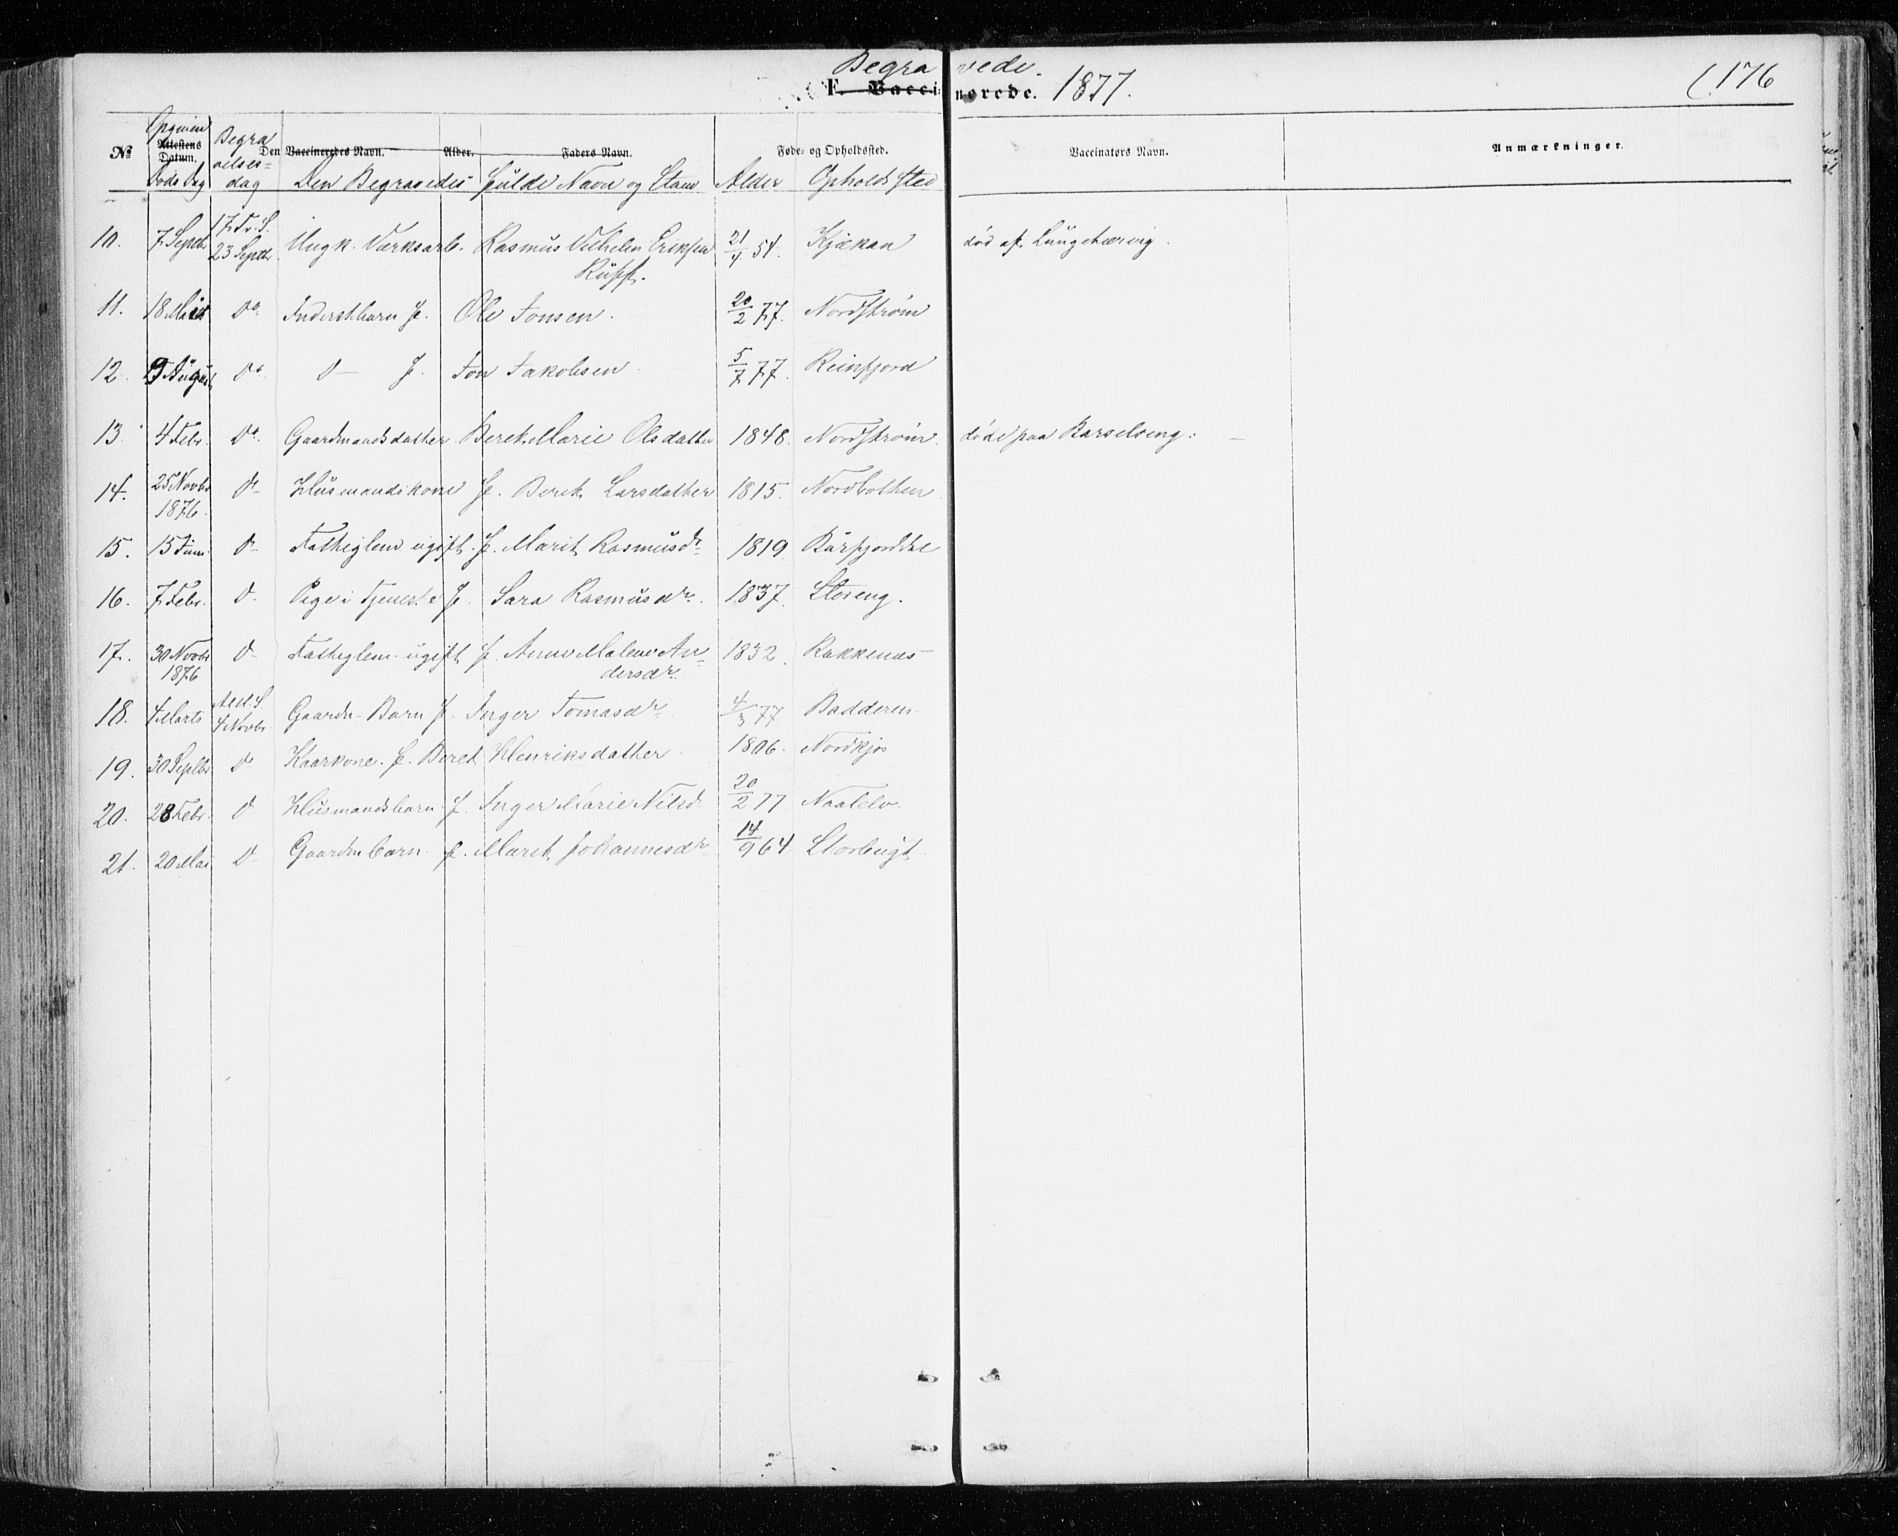 Begravede.
F. Vaccinerede. 1877.
176
Opgiven Begra
No Attestens Datum. velses- Den Vaccineredes Navn. Alder. Faders Navn. Føde- og Opholdssted. Vaccinatørs Navn. Anmærkninger.
Døds Dag dag Den Begravedes fulde Navn og Stam Alder Opholdssted
17. S.
10. 7 Septbr 23 Septbr Ungk. Værksarb. Rasmus Vilhelm Eriksen 21/4 54. Kjækan død af Lungetæring.
11. 18 Do Inderstbarn f. Ole Jonsen. 20/2 77. Nordstrøm
12. 9 August Do D— f. Jon Jakobsen 5/7 77. Reinfjord
13. 4 Febr. Do Gaardmandsdatter Beret Marie Olsdatter 1848. Nordstrøm døde paa Barselseng.
14. 25 Novbr D- Husmandskone f. Beret Larsdatter 1815. Nordbotten
1876.
15. 15 Juni D- Fattiglem ugift f. Marit Rasmusdr 1819.
16. 7 Febr. D- Pige i Tjeneste f. Sara Rasmusdr. 1837. Storeng.
17. 30 Novbr D- Fattiglem ugift f. Anne Malene An- 1832. Rakkenæs
1876 dersdr.
18. 4 Marts 4 Novbr Gaardm-Barn f. Inger Tomasdr 4/3 77 Badderen
19. 30 Septbr D- Kaarkone. f. Beret Henriksdatter 1806. Nordkjos
20. 28 Febr. D- Husmandsbarn f. Inger Marie Nilsd. 20/2 77.
21. 20 Mai D- Gaardm barn. f. Maret Johannesdr 14/9 64 Storbugt.